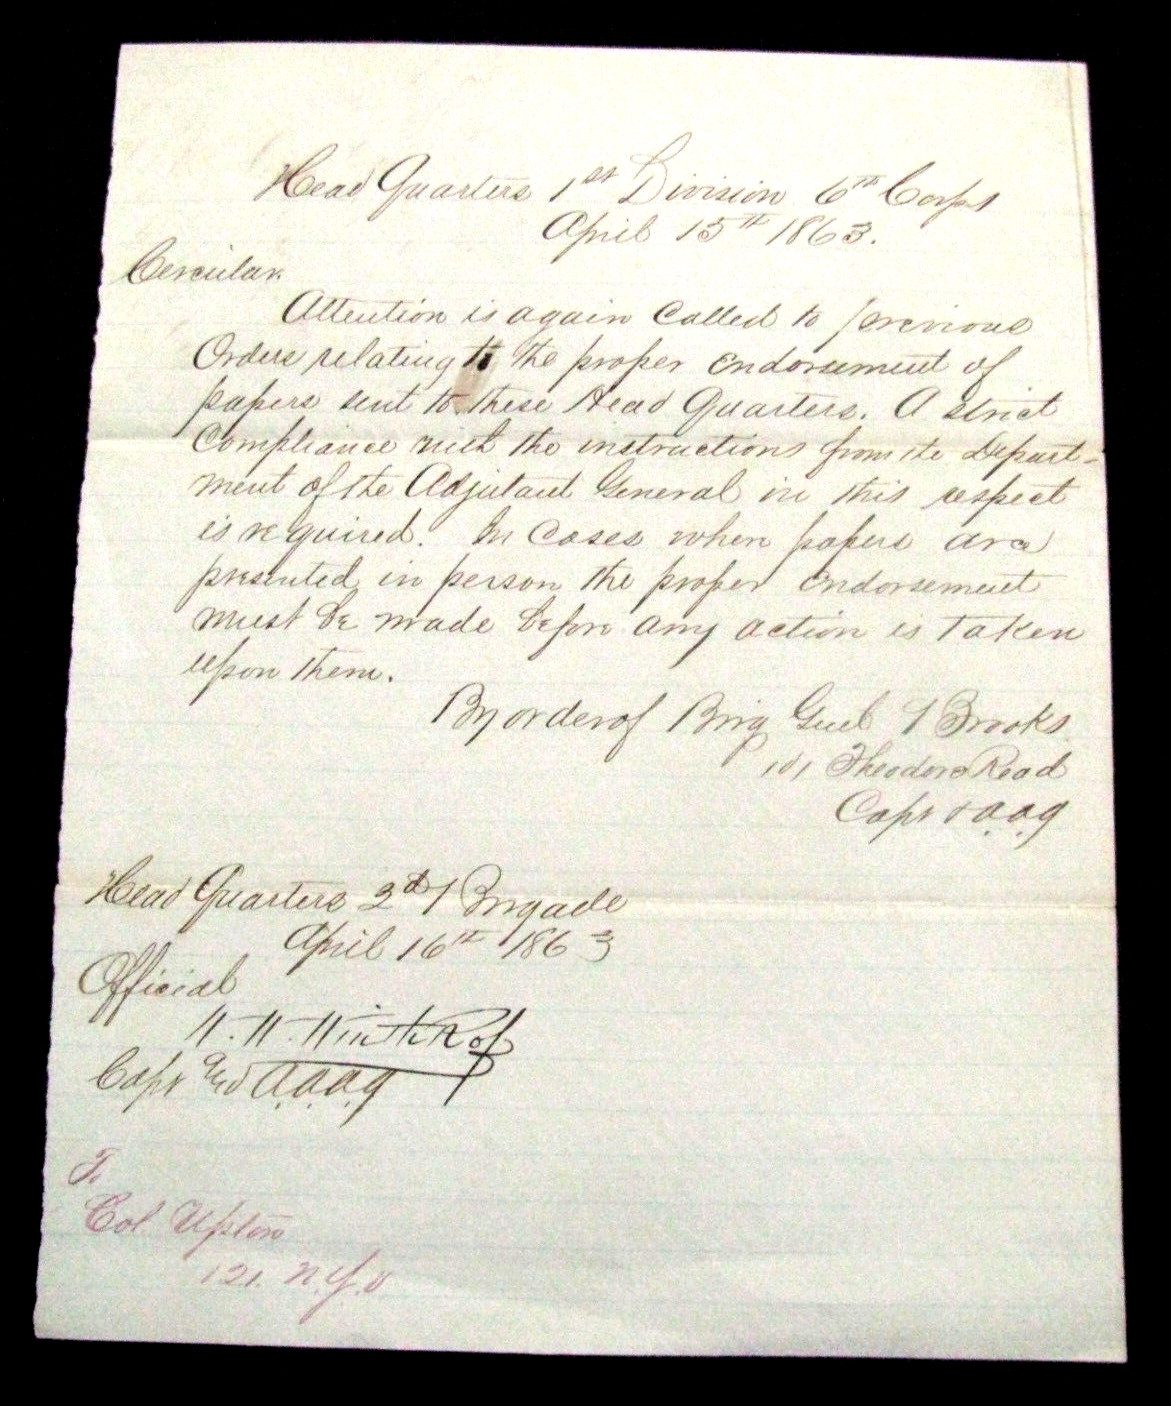 Head Quarters 1st Division 6th Corps
April 15th 1863.
Circular.
Attention is again Called to previous
Orders relating to the proper Endorsement of
papers sent to these Head Quarters. A strict
Compliance with the instructions from the Depart-
ment of the Adjutant General in this respect
is required. In Cases when papers are
presented in person the proper Endorsement
must be made before any action is taken
upon them.
By order of Brig Genl Brooks
Theodore Read
Capt & A.A.G
Head Quarters 2d Brigade
April 16th 1863
Official
Capt and A.A.A.G
To
Col Upton
121. N.Y.V